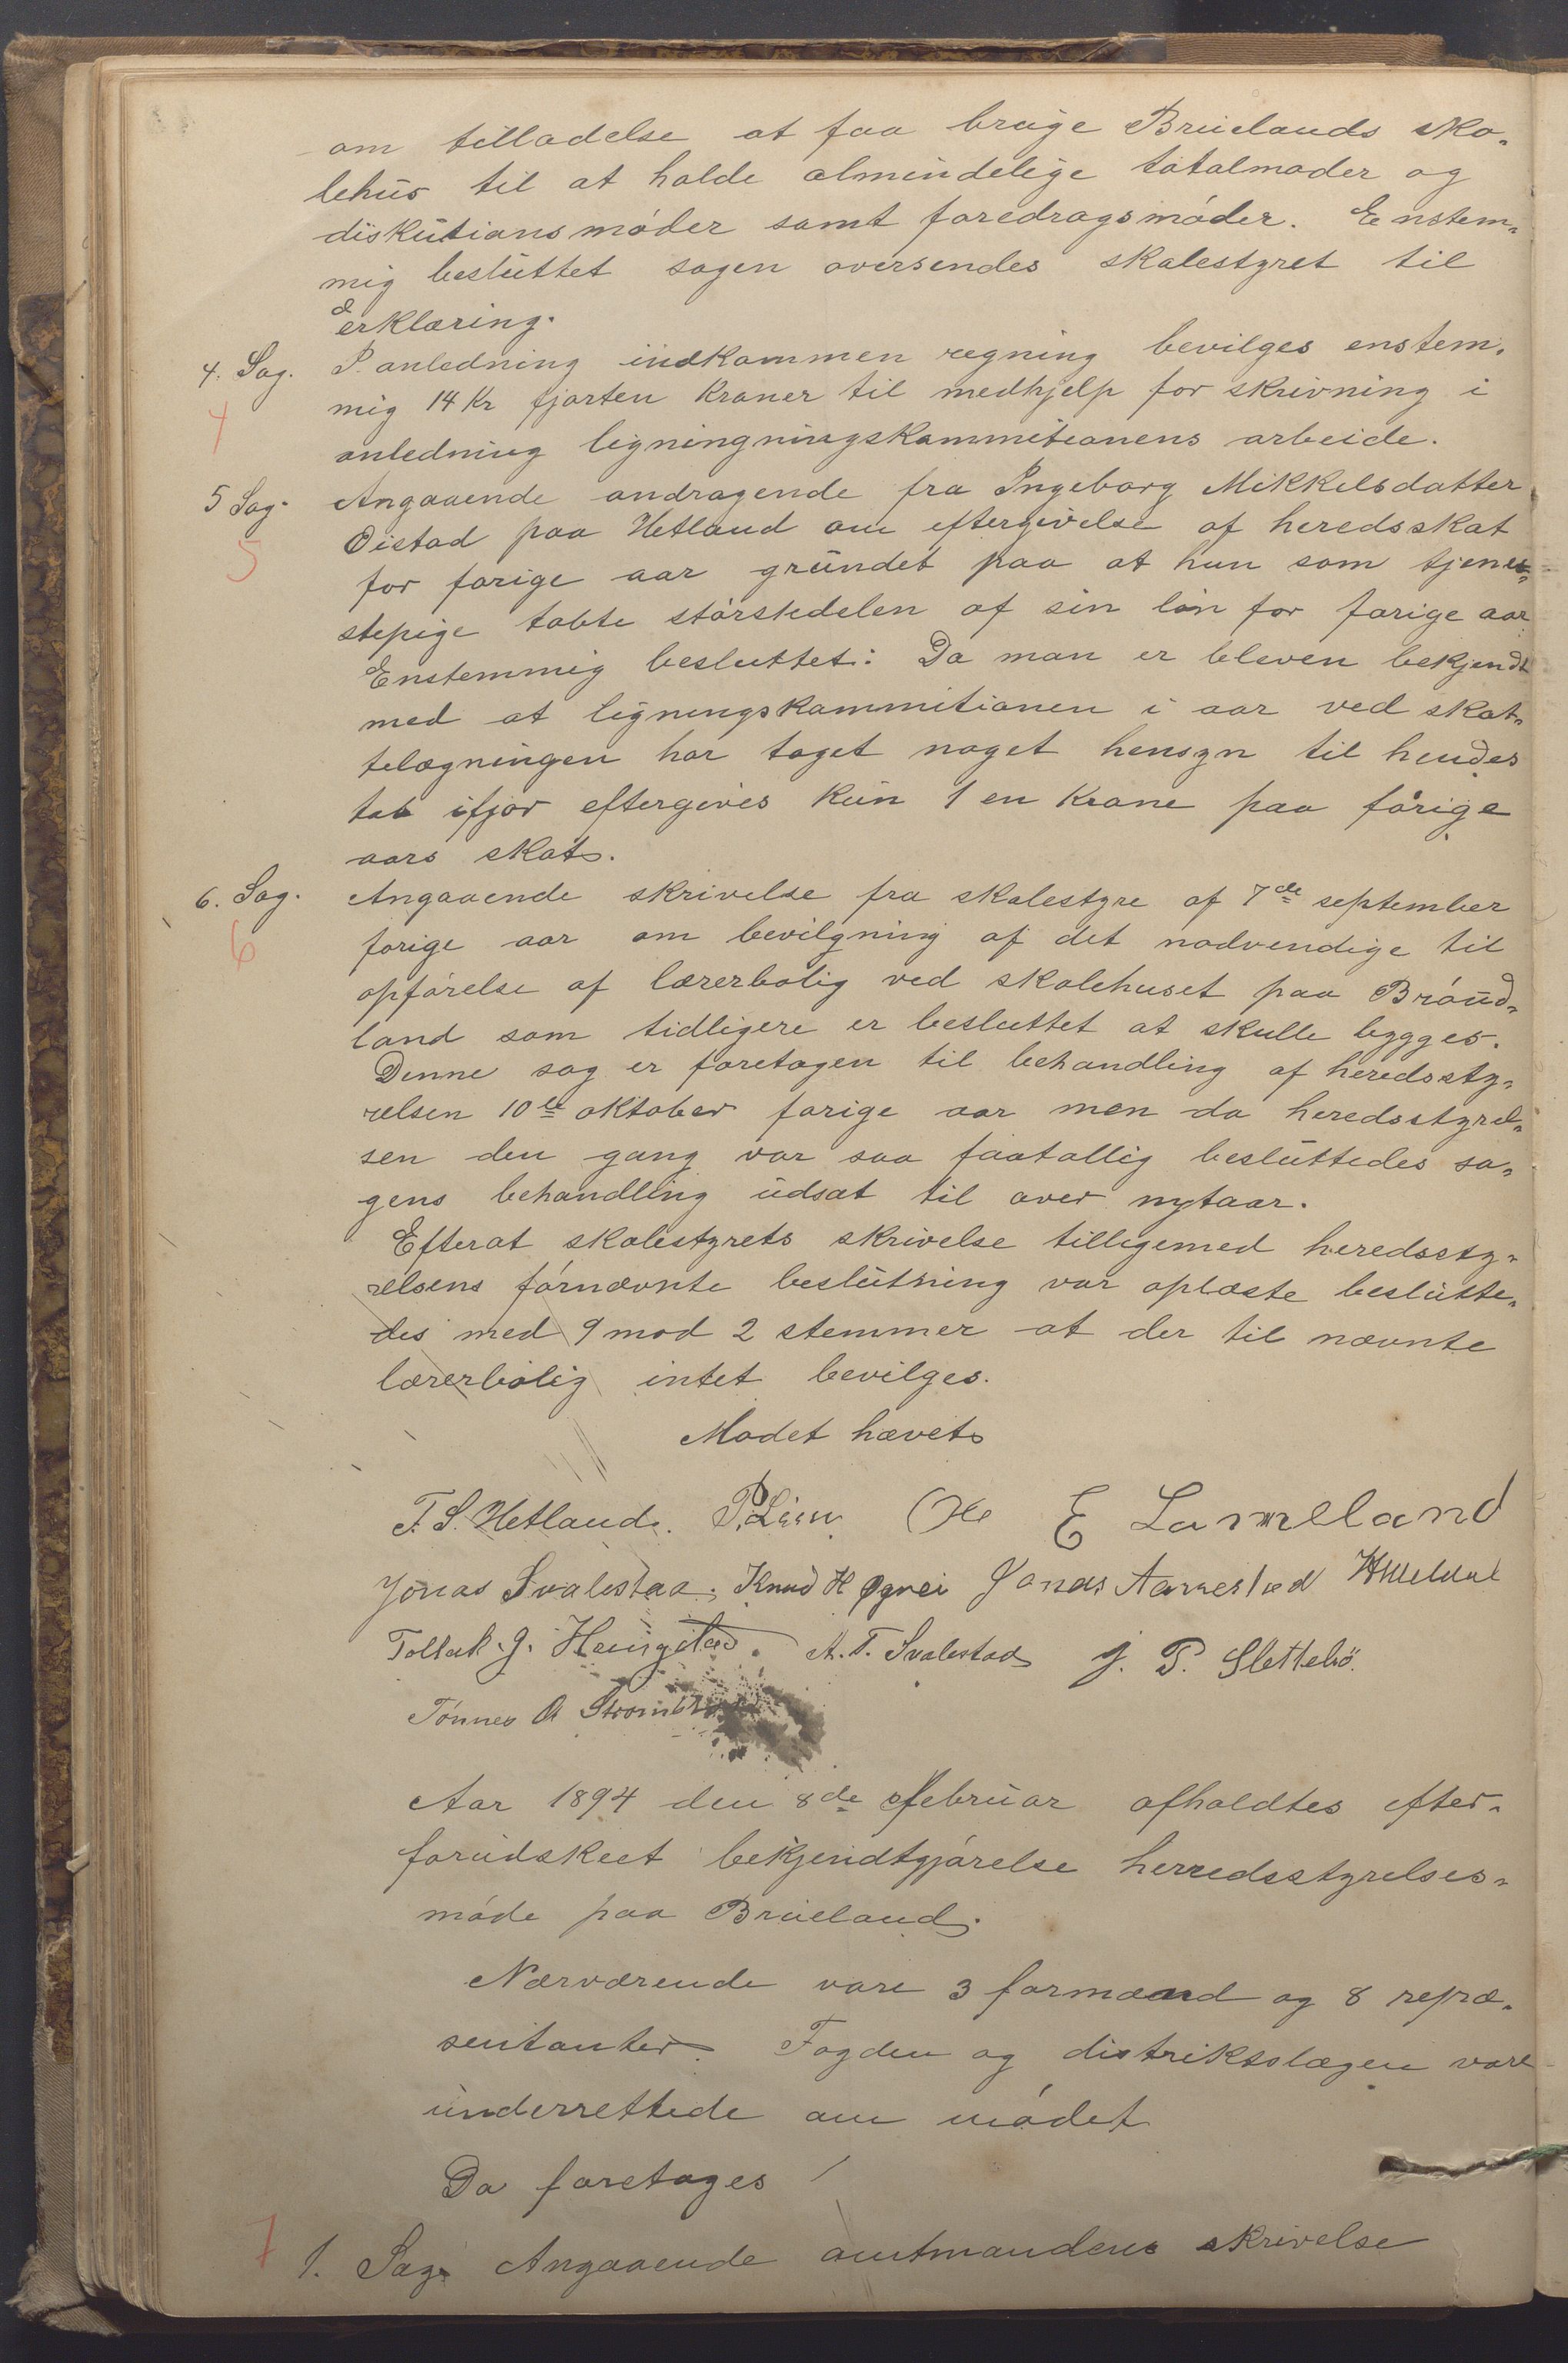 om tilladelse at faa bruge Bruelands sko-
lehus til at holde almindelige totalmøder og
diskutionsmøder samt foredragsmøder. Enstem-
mig besluttet sagen oversendes skolestyret til
erklæring.
4. Sag. I anledning indkommen regning bevilges enstem-
4
mig 14 Kr fjorten kroner til medhjelp for skrivning i
anledning ligningningskommitionens arbeide.
5 Sag. Angaaende andragende fra Ingeborg Mikkelsdatter
5
Øistad paa Hetland om eftergivelse af heredsskat
for forige aar grundet paa at hun som tjene-
stepige tabte størstedelen af sin løn for forige aar
Enstemmig besluttet: Da man er bleven bekjendt
med at ligningskommitionen i aar ved skat-
telægningen har taget noget hensyn til hendes
tab ifjor eftergives kun 1 en krone paa forige
aars skat.
6. Sag. Angaaende skrivelse fra skolestyre af 7de september
6
forige aar om bevilgning af det nødvendige til
opførelse af lærerbolig ved skolehuset paa Brøud-
land som tidligere er besluttet at skulle bygges.
Denne sag er foretagen til behandling af heredssty-
relsen 10de oktober forige aar men da heredsstyrel-
sen den gang var saa faatallig besluttedes sa-
gens behandling udsat til over nytaar.
Efterat skolestyrets skrivelse tilligemed heredssty-
relsens førnævnte beslutning var oplæste beslutte-
des med 9 mod 2 stemmer at der til nævnte
lærerbolig intet bevilges.
Mødet hævet
T. S. Hetland. P. Lien E Lameland
Jonas Svalestad. Knud H Øgrei Jonas Aarrestad
Tollak. J. Haugstad. A. T. Svalestad J. P. Slettebø.
Tønnes A
Aar 1894 den 8de februar afholdtes efter-
forudskeet bekjendtgjørelse herredsstyrelses-
møde paa Brueland.
Nærværende vare 3 formænd og 8 repræ-
sentanter. Fogden og distriktslægen vare
underrettede om mødet
Da foretages
1
1. Sag. Angaaende amtmandens skrivelse